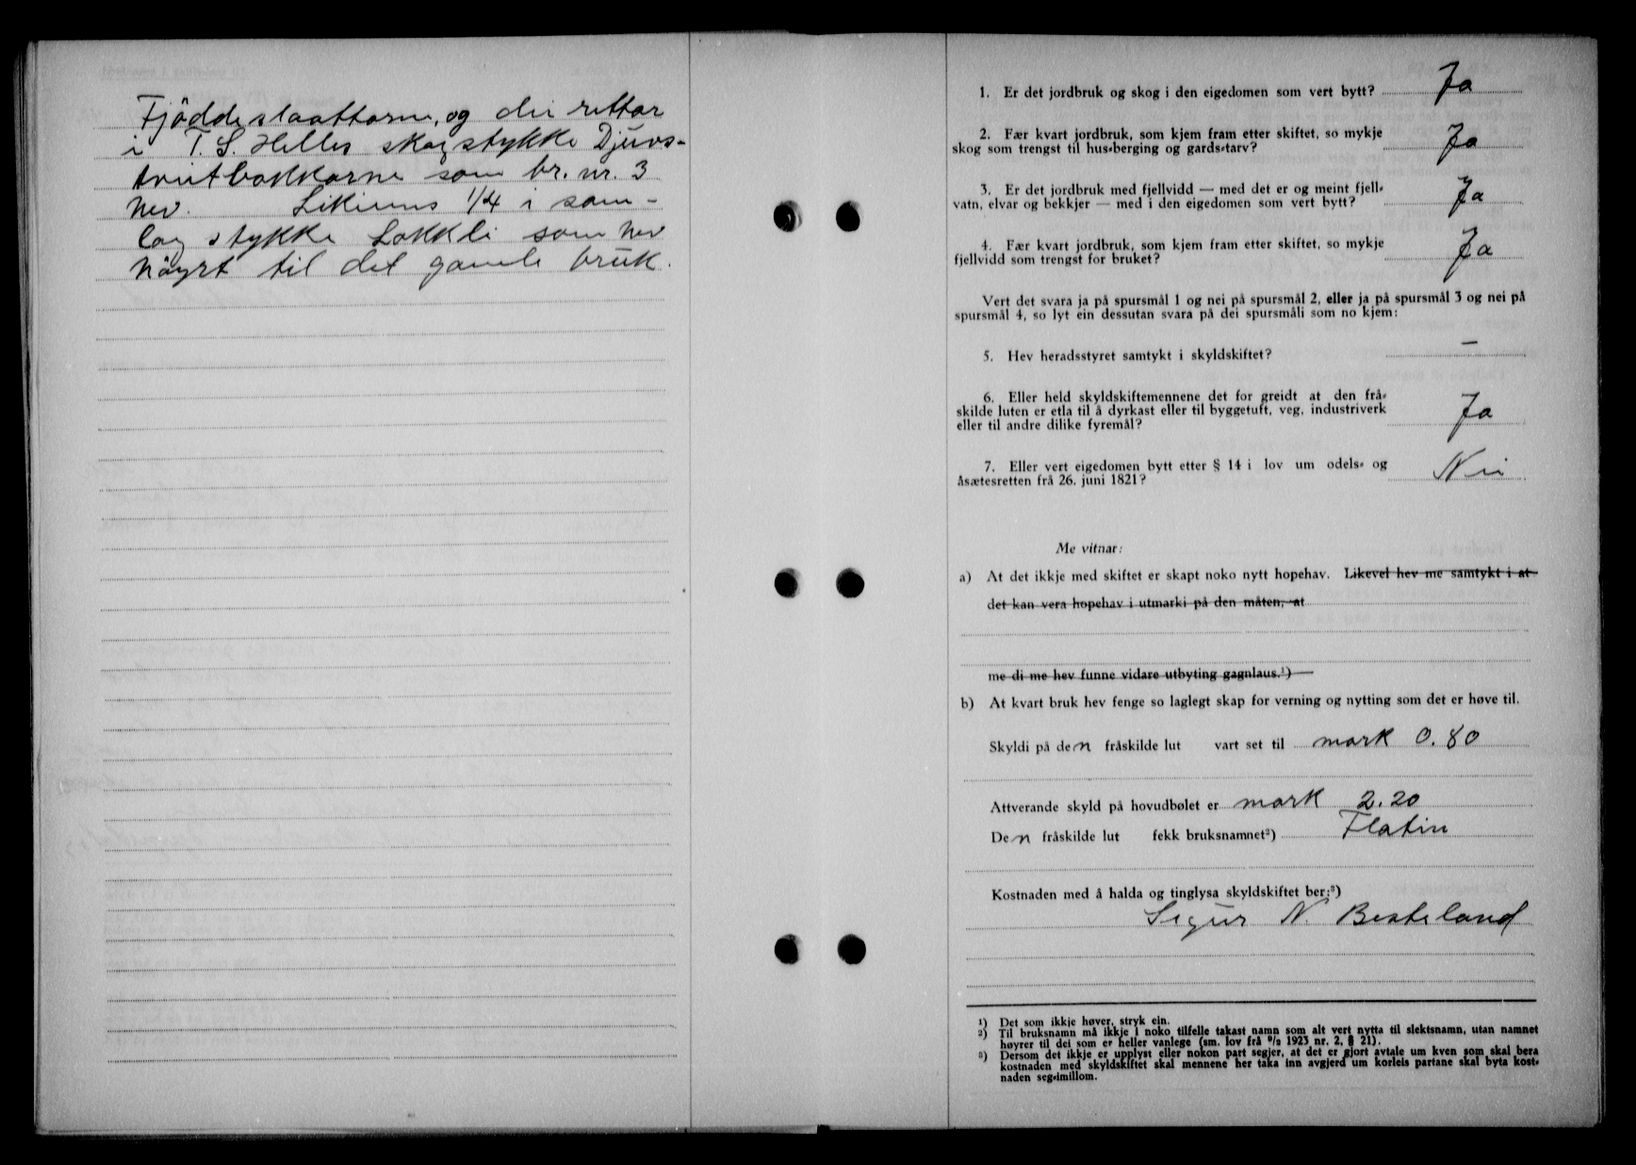 Fjöddeslaattarne, og dei rettar
i T. S. Helles skogstykke Djuvs-
tveitbakkarne som br. nr. 3
hev. Likeins 1/4 i sam-
lag stykke Lokkli som hev
höyrt til det gamle bruk.
1. Er det jordbruk og skog i den eigedomen som vert bytt? Ja
2. Fær kvart jordbruk, som kjem fram etter skiftet, so mykje
skog som trengst til hus-berging og gards-tarv? Ja
3. Er det jordbruk med fjellvidd — med det er og meint fjell-
vatn, elvar og bekkjer — med i den eigedomen som vert bytt? Ja
4. Fær kvart jordbruk, som kjem fram etter skiftet, so mykje
fjellvidd som trengst for bruket? Ja
Vert det svara ja på spursmål 1 og nei på spursmål 2, eller ja på spursmål 3 og nei på
spursmål 4, so lyt ein dessutan svara på dei spursmåli som no kjem:
5. Hev heradsstyret samtykt i skyldskiftet? —
6. Eller held skyldskiftemennene det for greidt at den frå-
skilde luten er etla til å dyrkast eller til byggetuft, veg, industriverk
eller til andre dilike fyremål? Ja
7. Eller vert eigedomen bytt etter § 14 i lov um odels- og
åsætesretten frå 26. juni 1821? Nei
Me vitnar:
a) At det ikkje med skiftet er skapt noko nytt hopehav. Likevel hev me samtykt i at
det kan vera hopehav i utmarki på den måten, at
me di me hev funne vidare utbyting gagnlaus.¹)
b) At kvart bruk hev fenge so laglegt skap for verning og nytting som det er høve til.
Skyldi på den fråskilde lut vart set til mark 0.80
Attverande skyld på hovudbølet er mark 2.20
Den fråskilde lut fekk bruksnamnet²) Flatin
Kostnaden med å halda og tinglysa skyldskiftet ber:³)
Sigur N. Besteland
¹) Det som ikkje høver, stryk ein.
²) Til bruksnamn må ikkje i noko tilfelle takast namn som alt vert nytta til slektsnamn, utan namnet
høyrer til dei som er heller vanlege (sm. lov frå ⁹/₂ 1923 nr. 2, § 21).
³) Dersom det ikkje er upplyst eller nokon part segjer, at det er gjort avtale um kven som skal bera
kostnaden med skyldskiftet skal mennene her taka inn avgjerd um korleis partane skal byta kost-
naden seg-imillom.